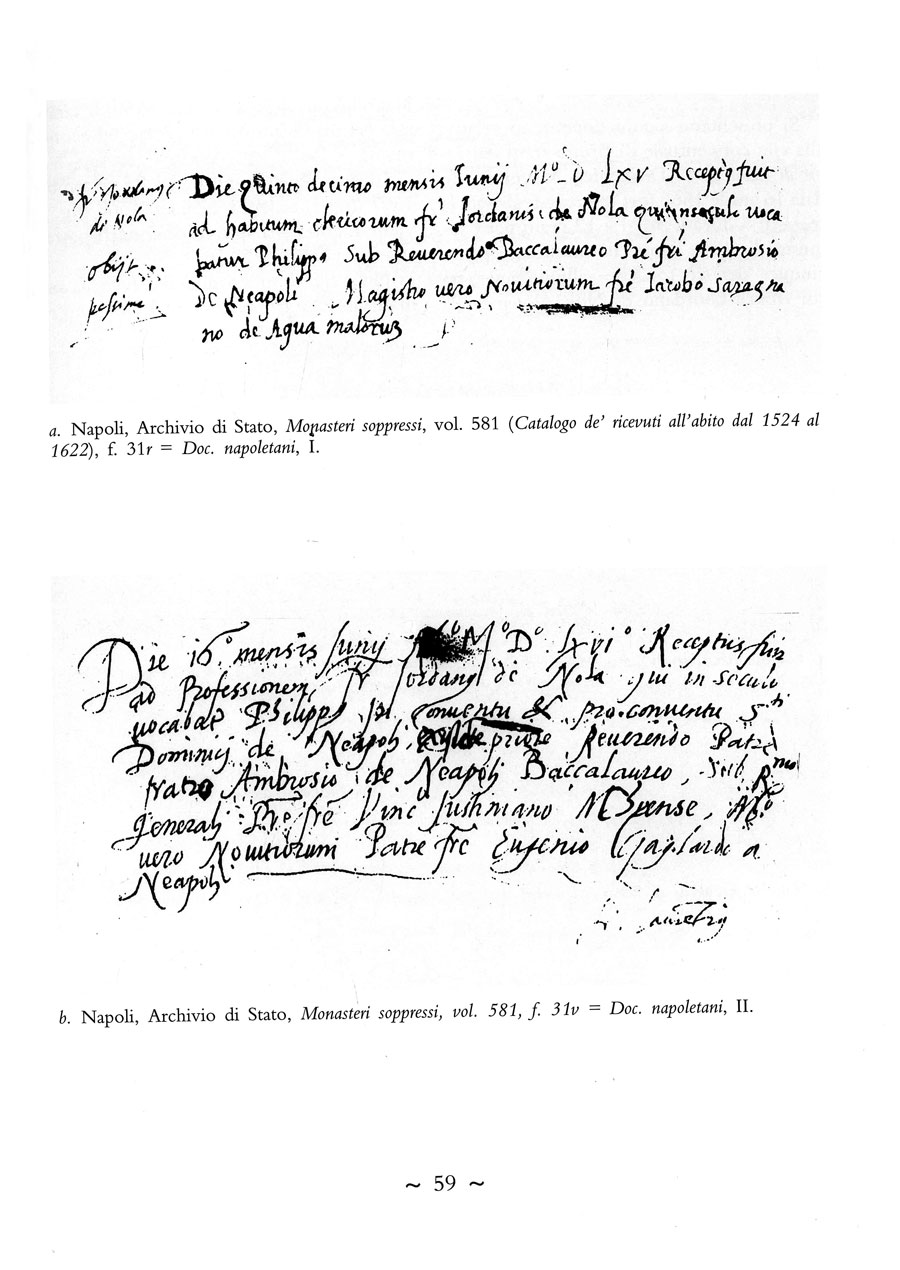 fr Jordanus
de Nola
obijt
pessime
Die quinto decimo mensis Iunij Mº D LXV Receptꝰ fuit
ad habitum clericorum frʳ Iordanis de Nola qui in seculo uoca
batur Philippꝰ Sub Reuerendº Baccalaureo Pre fri Ambrosio
De Neapoli Magistro uero Nouitiorum fre Iacobo saragna
no de Aqua malorum
a. Napoli, Archivio di Stato, Monasteri soppressi, vol. 581 (Catalogo de’ ricevuti all’abito dal 1524 al
1622), f. 31r = Doc. napoletani, I.
Die 16º mensis Iunij Mº Dº Lxviº Receptus fuit
ad Professionem fr Iordanꝰ de Nola qui in seculo
uocabat Philippꝰ in conuentu & pro conuentu Sᵗⁱ
Dominici de Neapoli priore Reuerendo Patre
fratre Ambrosio de Neapoli Baccalaureo, sub Rᵐᵒ
Generali Pre fre Vinc Iustiniano
uero Nouitiorum Patre fre Eugenio Gagliardo a
Neapoli
b. Napoli, Archivio di Stato, Monasteri soppressi, vol. 581, f. 31v = Doc. napoletani, II.
~ 59 ~